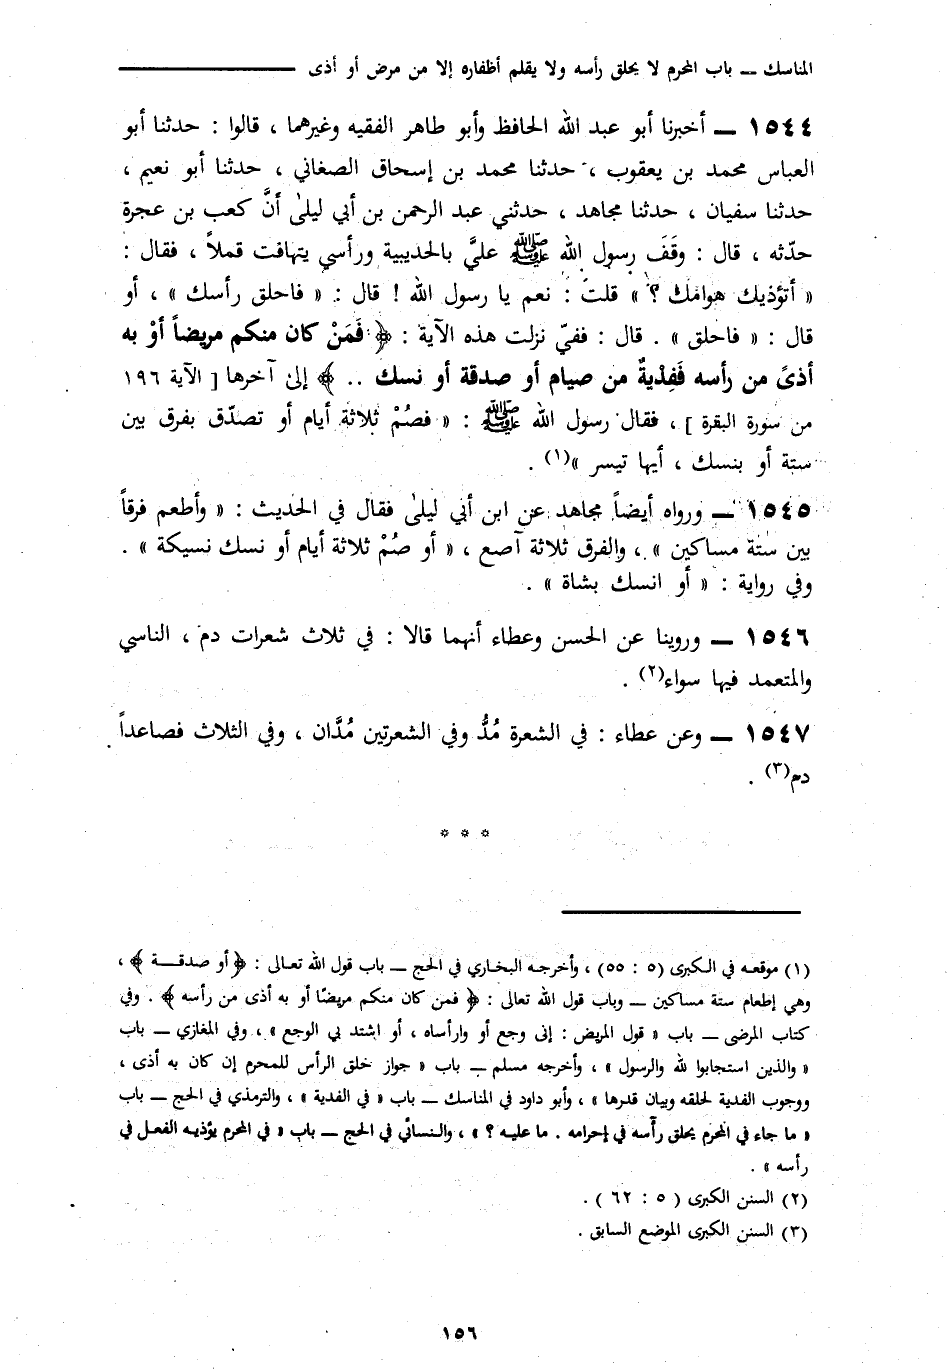 المناسك ــ باب المحرم لا يحلق رأسه ولا يقلم أظفاره إلا من مرض أو أذى
١٥٤٤ ــ أخبرنا أبو عبد الله الحافظ وأبو طاهر الفقيه وغيرهما ، قالوا : حدثنا أبو
العباس محمد بن يعقوب ، حدثنا محمد بن إسحاق الصغاني ، حدثنا أبو نعيم ،
حدثنا سفيان ، حدثنا مجاهد ، حدثني عبد الرحمن بن أبي ليلىٰ أنَّ كعب بن عجرة
حدّثه ، قال : وقَفَ رسول الله ﷺ عليَّ بالحديبية ورأسي يتهافت قملاً ، فقال :
« أتؤذيك هوامك ؟ » قلت : نعم يا رسول الله ! قال : « فاحلق رأسك » ، أو
قال : « فاحلق » . قال : ففيّ نزلت هذه الآية : ﴿ فَمَنْ كان منكم مريضاً أوْ به
أذىً من رأسه فَفِدْيةٌ من صيام أو صدقة أو نسك .. ﴾ إلىٰ آخرها [ الآية ١٩٦
من سورة البقرة ] ، فقال رسول الله ﷺ : « فصُمْ ثلاثة أيام أو تصدّق بفرق بين
ستة أو بنسك ، أيها تيسر »(١) .
١٥٤٥ ــ ورواه أيضاً مجاهد عن ابن أبي ليلىٰ فقال في الحديث : « وأطعم فرقاً
بين ستة مساكين » ، والفرق ثلاثة آصع ، « أو صُمْ ثلاثة أيام أو نسك نسيكة » .
وفي رواية : « أو انسك بشاة » .
١٥٤٦ ــ وروينا عن الحسن وعطاء أنهما قالا : في ثلاث شعرات دم ، الناسي
والمتعمد فيها سواء(٢) .
١٥٤٧ ــ وعن عطاء : في الشعرة مُدٌّ وفي الشعرتين مُدَّان ، وفي الثلاث فصاعداً
دم(٣) .
* * *
(١) موقعه في الكبرى (٥ : ٥٥) ، وأخرجه البخاري في الحج ــ باب قول الله تعالى : ﴿أو صدقة ﴾ ،
وهي إطعام ستة مساكين ــ وباب قول الله تعالى : ﴿ فمن كان منكم مريضًا أو به أذى من رأسه ﴾ . وفي
كتاب المرضى ــ باب « قول المريض : إنى وجع أو وارأساه ، أو اشتد بي الوجع » ، وفي المغازي ــ باب
« والذين استجابوا لله والرسول » ، وأخرجه مسلم ــ باب « جواز حلق الرأس للمحرم إن كان به أذى ،
ووجوب الفدية لحلقه وبيان قدرها » ، وأبو داود في المناسك ــ باب « في الفدية » ، والترمذي في الحج ــ باب
« ما جاء في المحرم يحلق رأسه في إحرامه . ما عليه ؟ » ، والنسائي في الحج ــ باب « في المحرم يؤذيه القمل في
رأسه » .
(٢) السنن الكبرى ( ٥ : ٦٢ ) .
(٣) السنن الكبرى الموضع السابق .
١٥٦